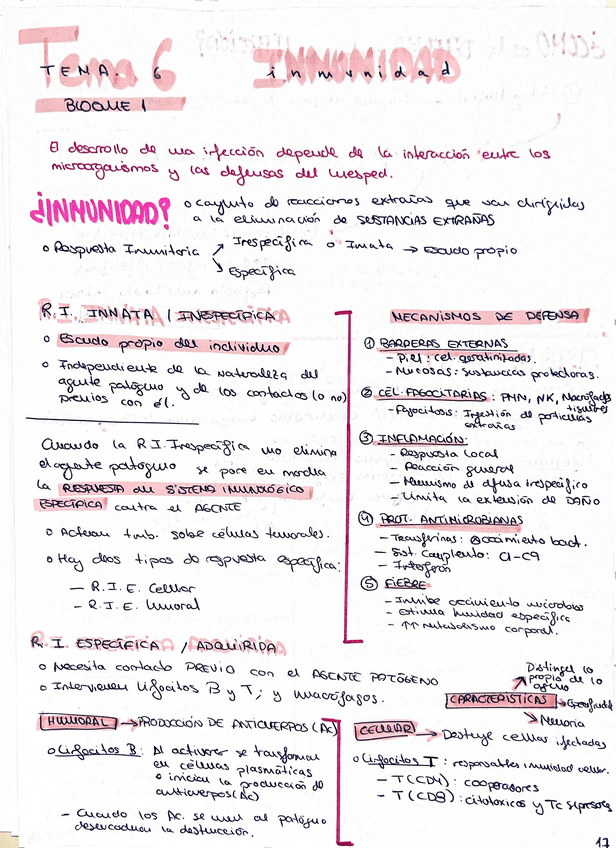 Tema 6 INMUNIDAD
TEMA. 6 inmunidad
BLOQUE 1
El desarrollo de una infección depende de la interacción entre los
microorganismos y las defensas del huesped.
¿INMUNIDAD?
o conjunto de reacciones extrañas que van dirigidas
a la eliminación de SUSTANCIAS EXTRAÑAS
o Respuesta Inmunitaria
Inespecífica o Innata → Escudo propio
Específica
R.I. INNATA / INESPECÍFICA
o Escudo propio del individuo
o Independiente de la naturaleza del
agente patógeno y de los contactos (o no)
previos con él.
Cuando la R.I. Inespecífica no elimina
el agente patógeno se pone en marcha
la RESPUESTA del SISTEMA INMUNOLÓGICO
ESPECÍFICA contra el AGENTE
o Actúan tmb. sobre células tumorales.
o Hay dos tipos de respuesta específica:
— R.I.E. Celular
— R.I.E. Humoral
MECANISMOS DE DEFENSA
① BARRERAS EXTERNAS
- Piel: cel. queratinizadas.
- Mucosas: sustancias protectoras.
② CEL. FAGOCITARIAS: PMN, NK, Macrófagos
tisulares
- Fagocitosis: Ingestión de partículas
extrañas.
③ INFLAMACIÓN:
- Respuesta local
- Reacción general
- Mecanismo de defensa inespecífico
- Limita la extensión de DAÑO
④ PROT. ANTIMICROBIANAS
- Transferrinas: crecimiento bact.
- Sist. Complemento: C1-C9
- Interferón
⑤ FIEBRE
- Inhibe crecimiento microbios
- Estimula inmunidad específica
- ↑↑ metabolismo corporal.
R.I. ESPECÍFICA / ADQUIRIDA
o Necesita contacto PREVIO con el AGENTE PATÓGENO
o Intervienen linfocitos B y T; y macrófagos.
Distingue lo
propio de lo
ajeno
CARACTERÍSTICAS → Especificidad
Memoria
HUMORAL → PRODUCCIÓN DE ANTICUERPOS (Ac)
o Linfocitos B: Al activarse se transforman
en células plasmáticas
o inician la producción de
anticuerpos (Ac)
- Cuando los Ac. se unen al patógeno
desencadenan la destrucción.
CELULAR → Destruye células infectadas
o Linfocitos T: responsables inmunidad celular.
- T(CD4): cooperadores
- T(CD8): citotóxicos y Tc supresores
17